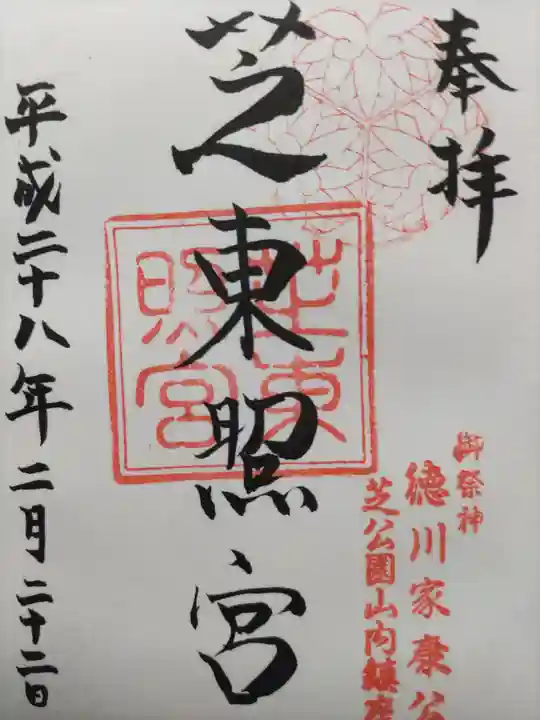 奉拝
御祭神
徳川家康公
芝公園山内鎮座
芝東照宮
芝東
照宮
平成二十八年二月二十二日